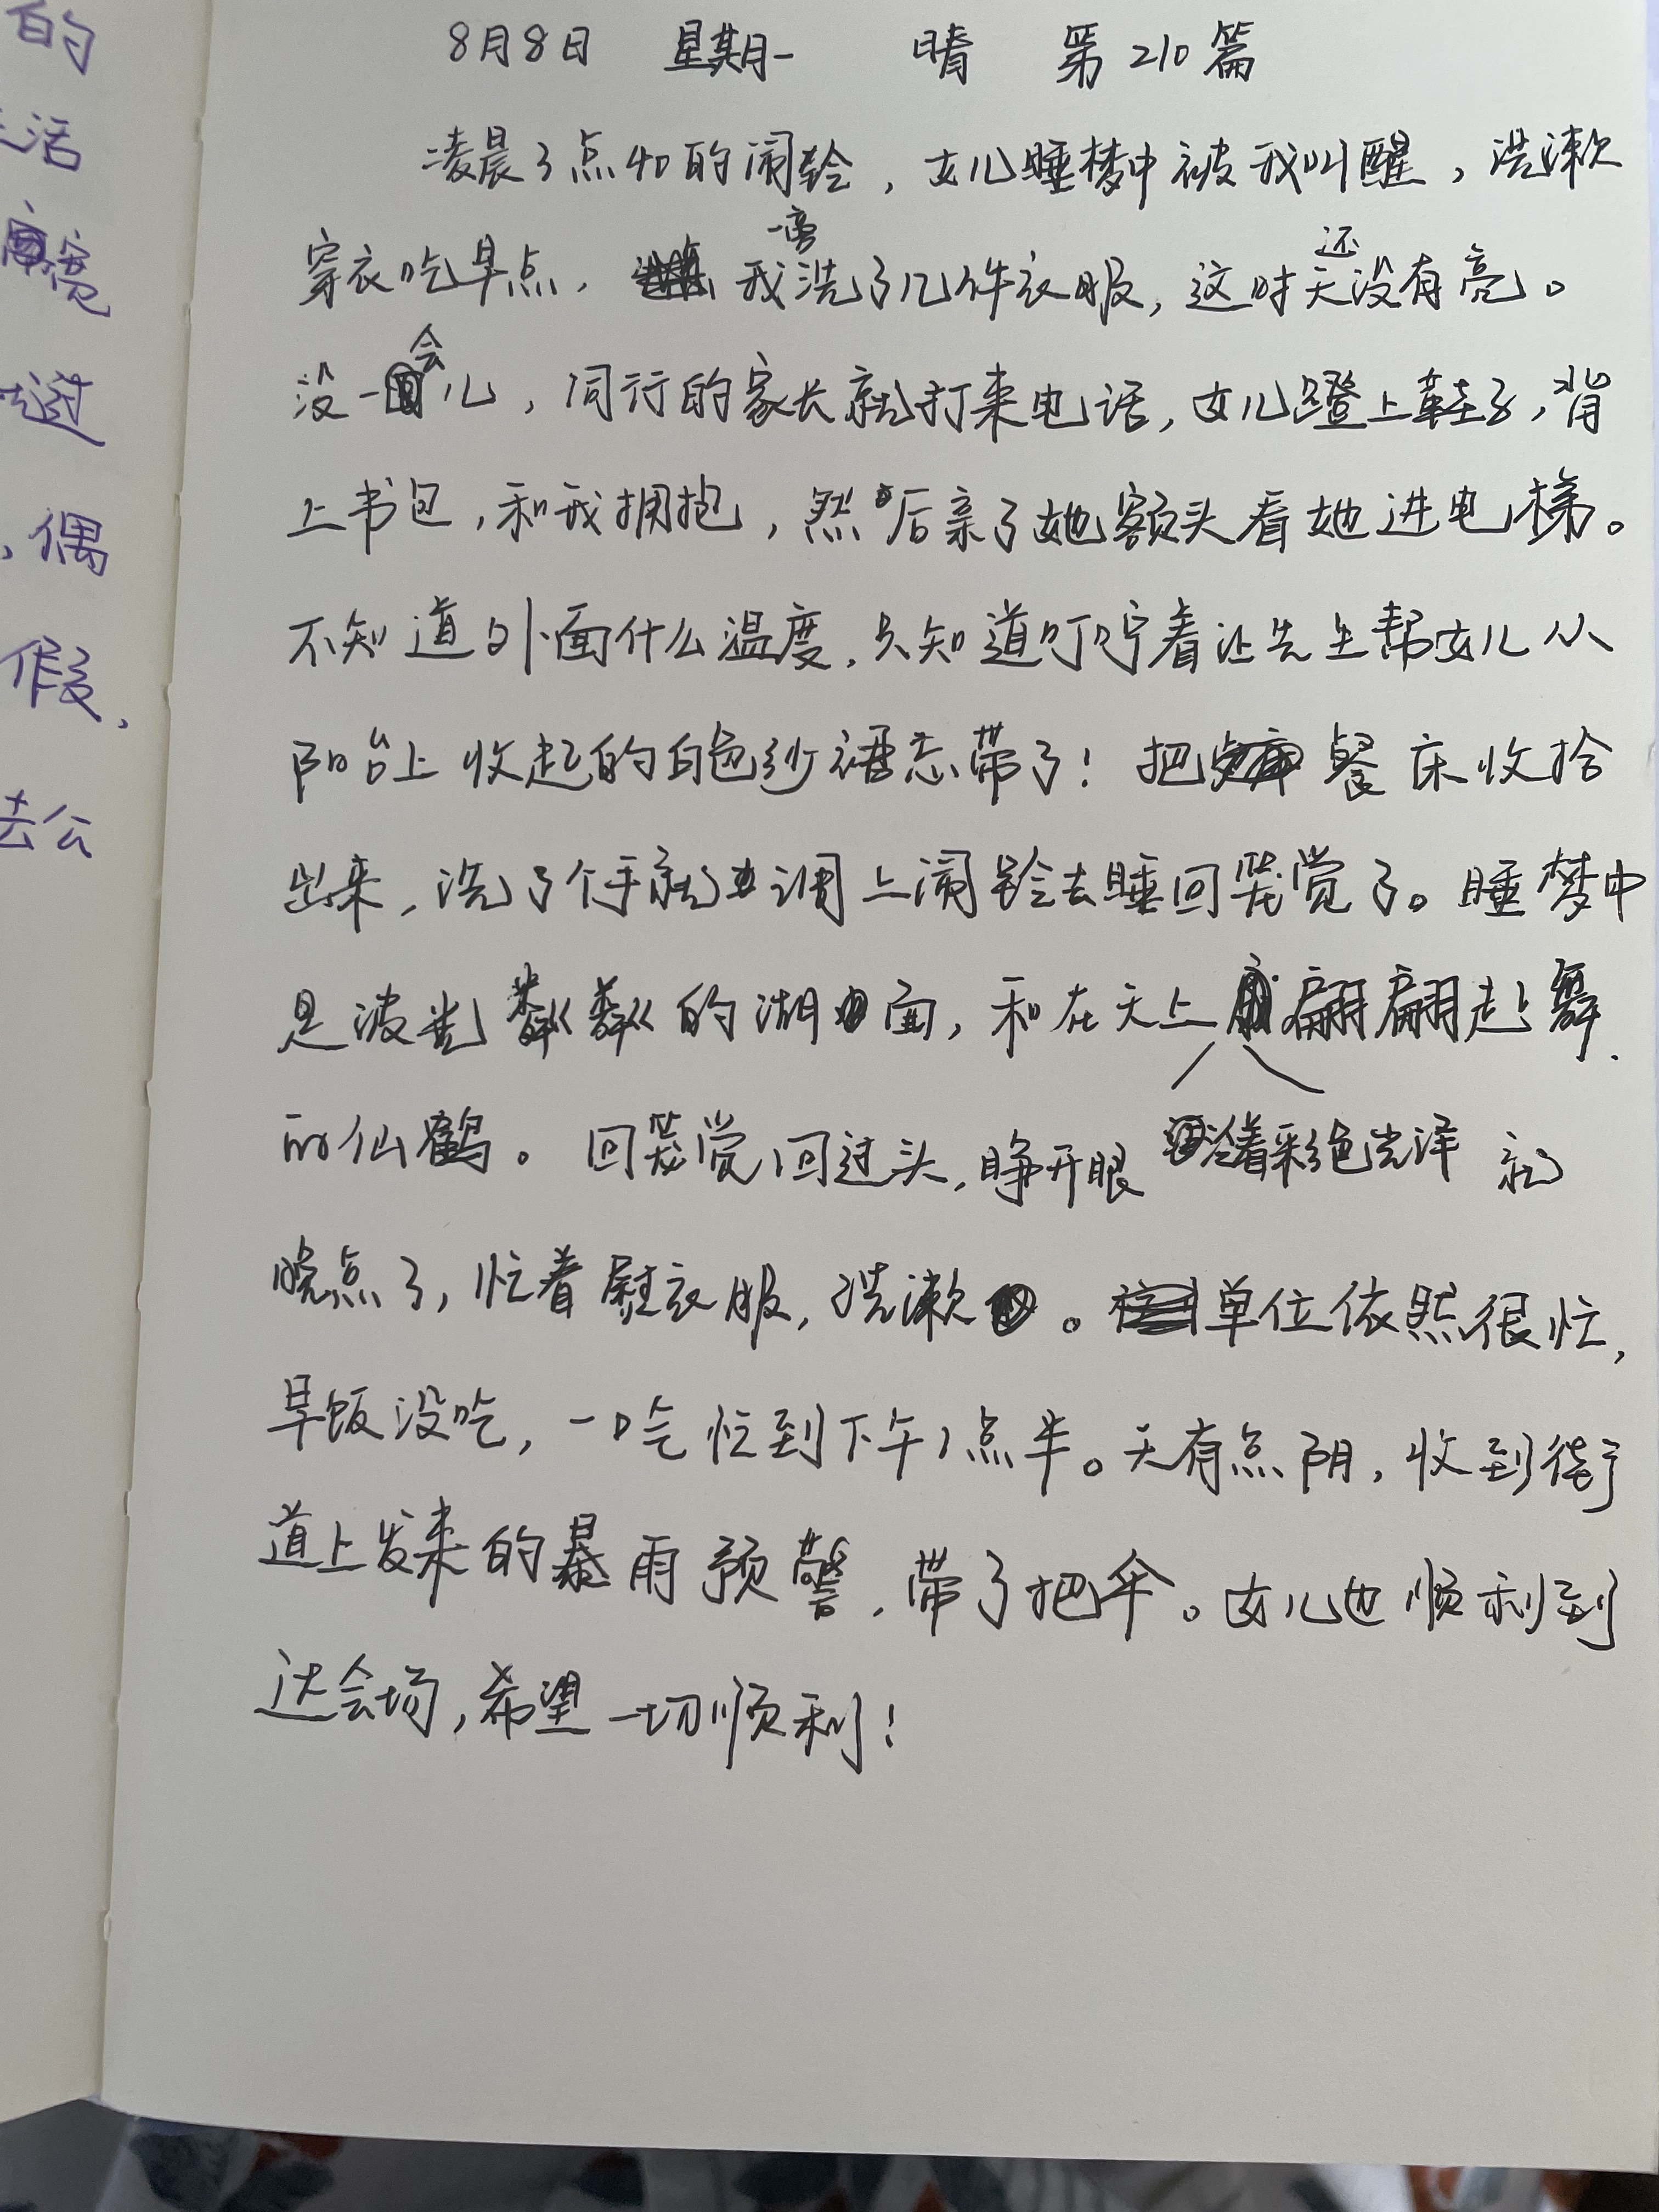 的
活
寞
过
，偶
假，
去公
8月8日 星期一 晴 第210篇
凌晨3点40的闹铃，女儿睡梦中被我叫醒，洗漱
穿衣吃早点，我一旁洗了几件衣服，这时天还没有亮。
没一会儿，同行的家长就打来电话，女儿蹬上鞋子，背
上书包，和我拥抱，然后亲了她额头看她进电梯。
不知道外面什么温度，只知道叮咛着让先生帮女儿从
阳台上收起的白色纱裙忘带了！把餐床收拾
出来，洗了个手就调上闹铃去睡回笼觉了。睡梦中
是波光粼粼的湖面，和在天上翩翩起舞
的仙鹤。回笼觉回过头，睁开眼 泛着彩色光泽 就
晚点了，忙着熨衣服，洗漱。单位依然很忙，
早饭没吃，一口气忙到下午1点半。天有点阴，收到街
道上发来的暴雨预警，带了把伞。女儿也顺利到
达会场，希望一切顺利！